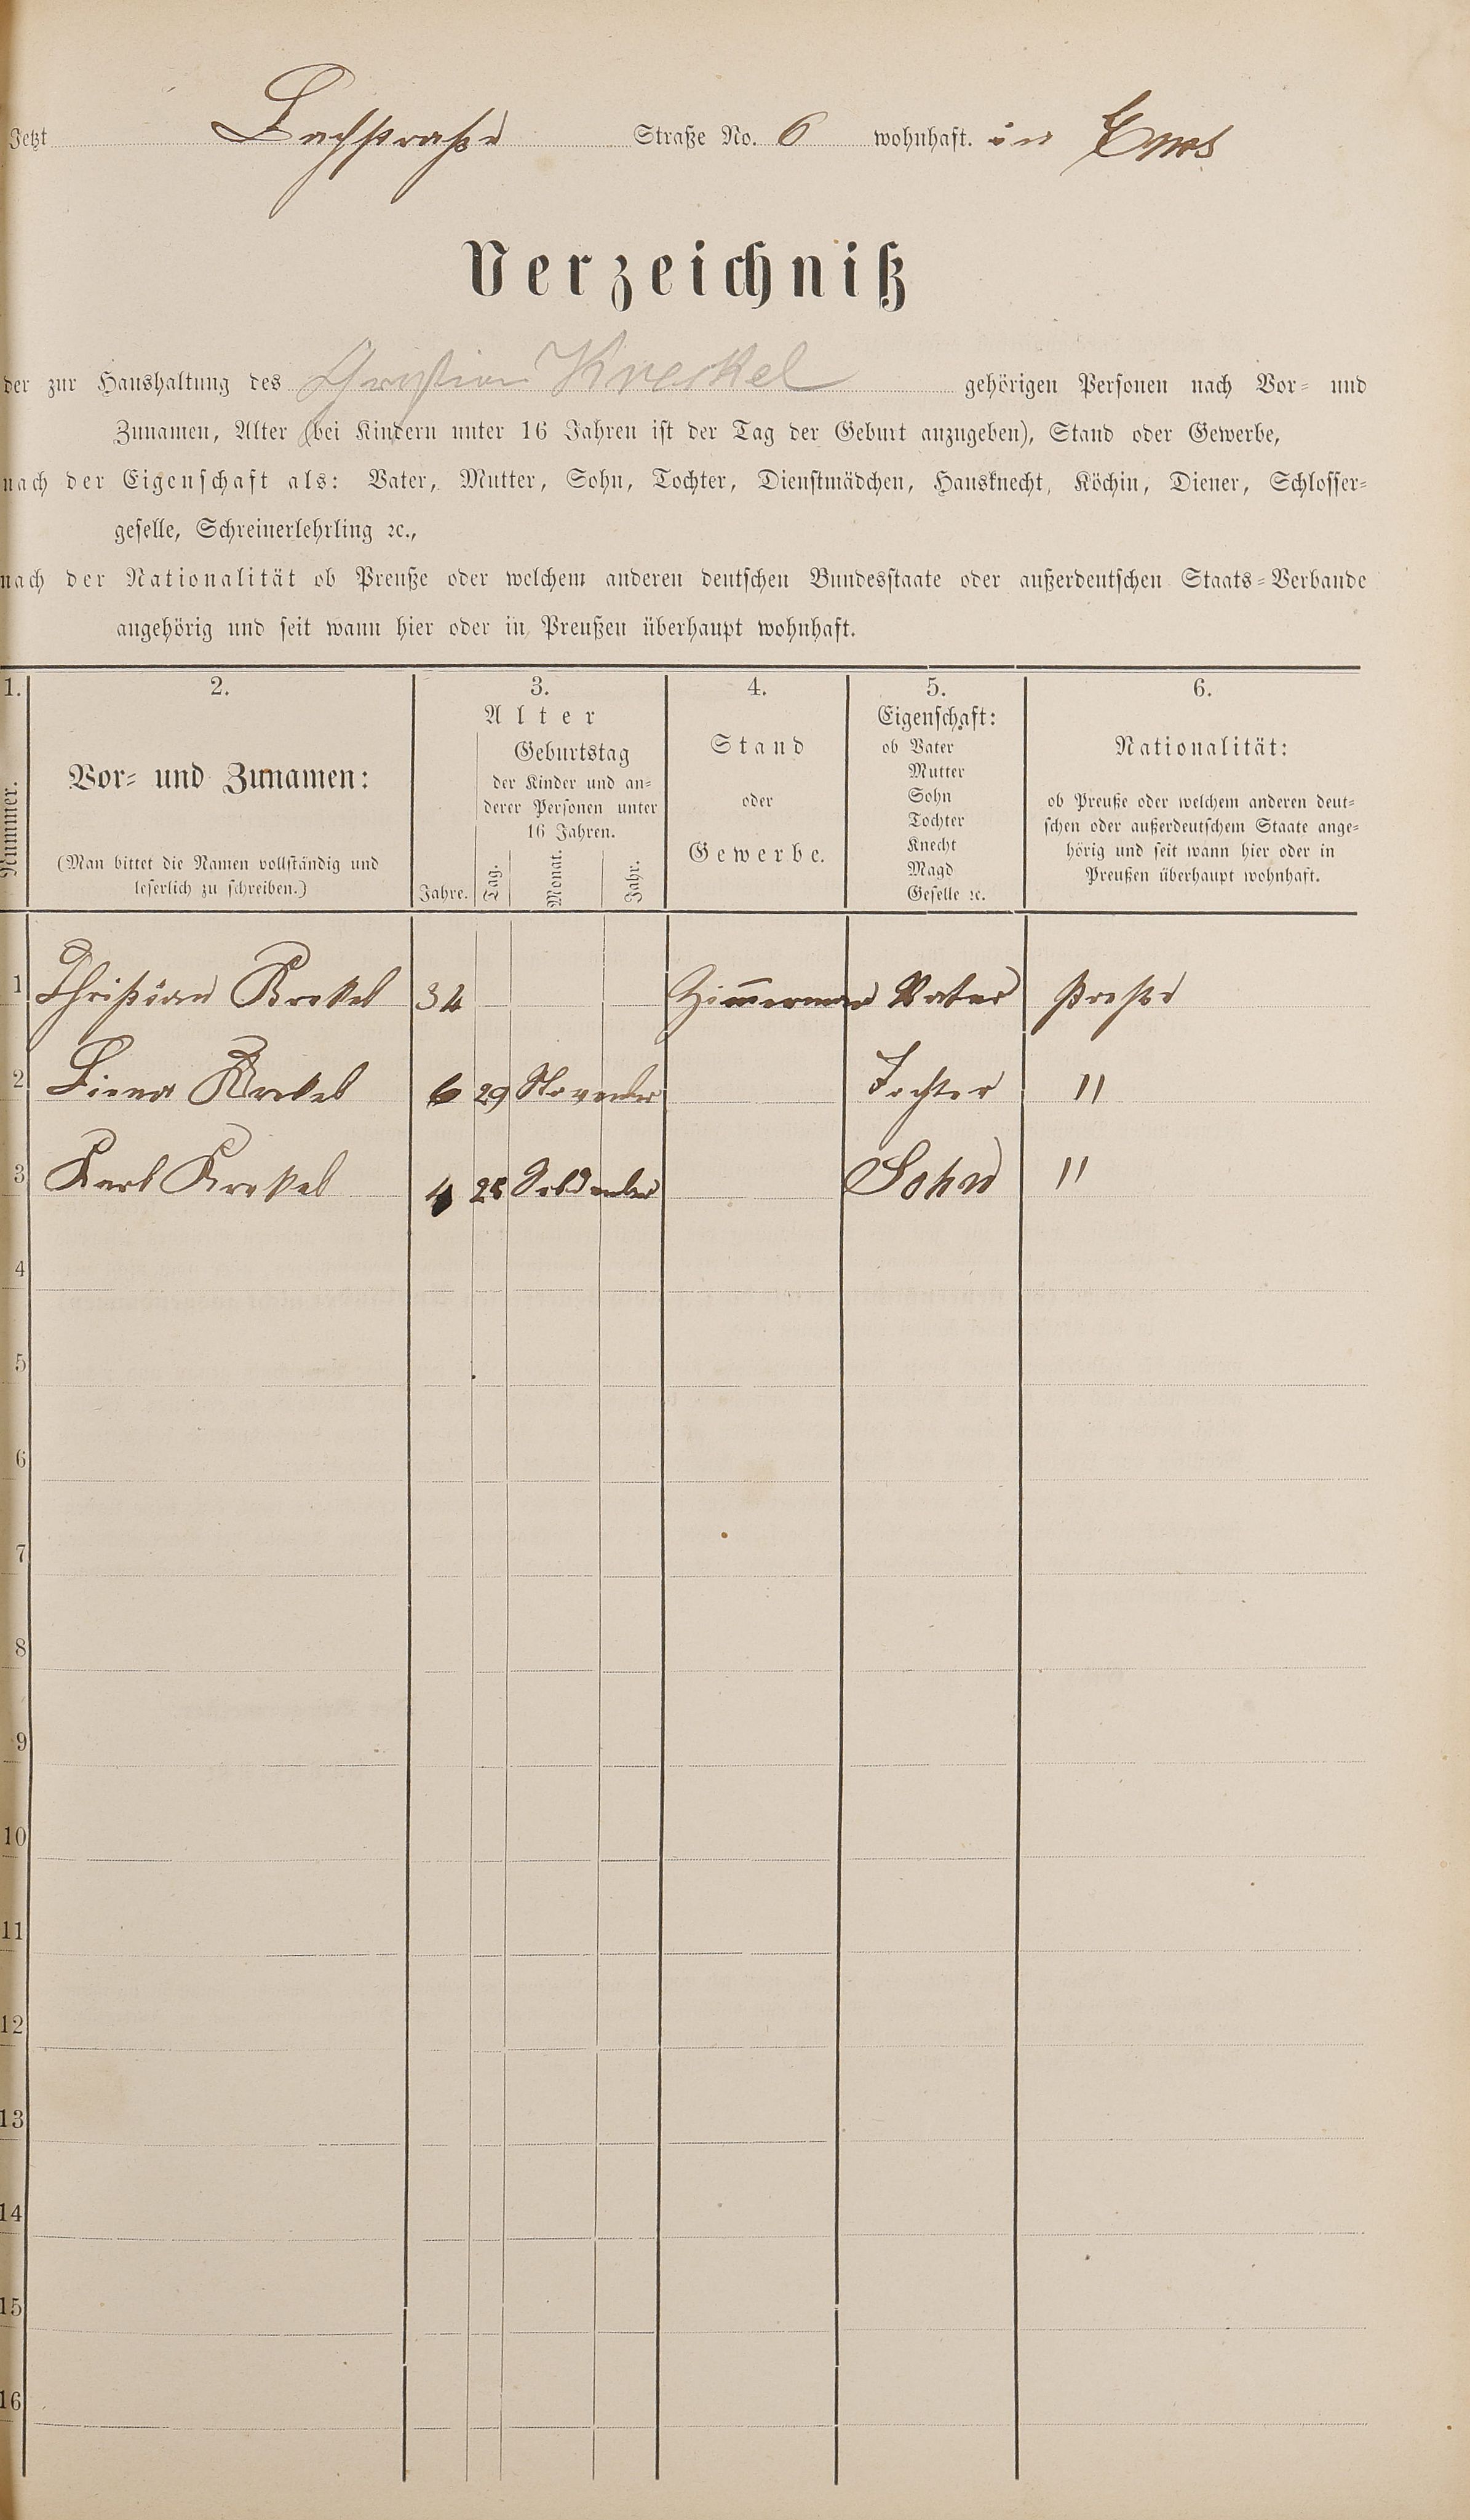 Jetzt Bachstraße Straße No. 6 wohnhaft. in Ems
Verzeichniß
der zur Haushaltung des Christian Kreckel gehörigen Personen nach Vor- und
Zunamen, Alter (bei Kindern unter 16 Jahren ist der Tag der Geburt anzugeben), Stand oder Gewerbe,
nach der Eigenschaft als: Vater, Mutter, Sohn, Tochter, Dienstmädchen, Hausknecht, Köchin, Diener, Schlosser-
geselle, Schreinerlehrling ꝛc.,
nach der Nationalität ob Preuße oder welchem anderen deutschen Bundesstaate oder außerdeutschen Staats-Verbande
angehörig und seit wann hier oder in Preußen überhaupt wohnhaft.
1. 2. 3. 4. 5. 6.
Nummer.
Vor- und Zunamen:
(Man bittet die Namen vollständig und
leserlich zu schreiben.)
Alter
Jahre.
Geburtstag
der Kinder und an-
derer Personen unter
16 Jahren.
Tag. Monat. Jahr.
Stand
oder
Gewerbe.
Eigenschaft:
ob Vater
Mutter
Sohn
Tochter
Knecht
Magd
Geselle ꝛc.
Nationalität:
ob Preuße oder welchem anderen deut-
schen oder außerdeutschem Staate ange-
hörig und seit wann hier oder in
Preußen überhaupt wohnhaft.
1 Christian Krekel 34 Zimmerman Vater
2 Liena Krekel 6 29 November Tochter "
3 Karl Krekel 4 28 Sohn "
4
5
6
7
8
9
10
11
12
13
14
15
16